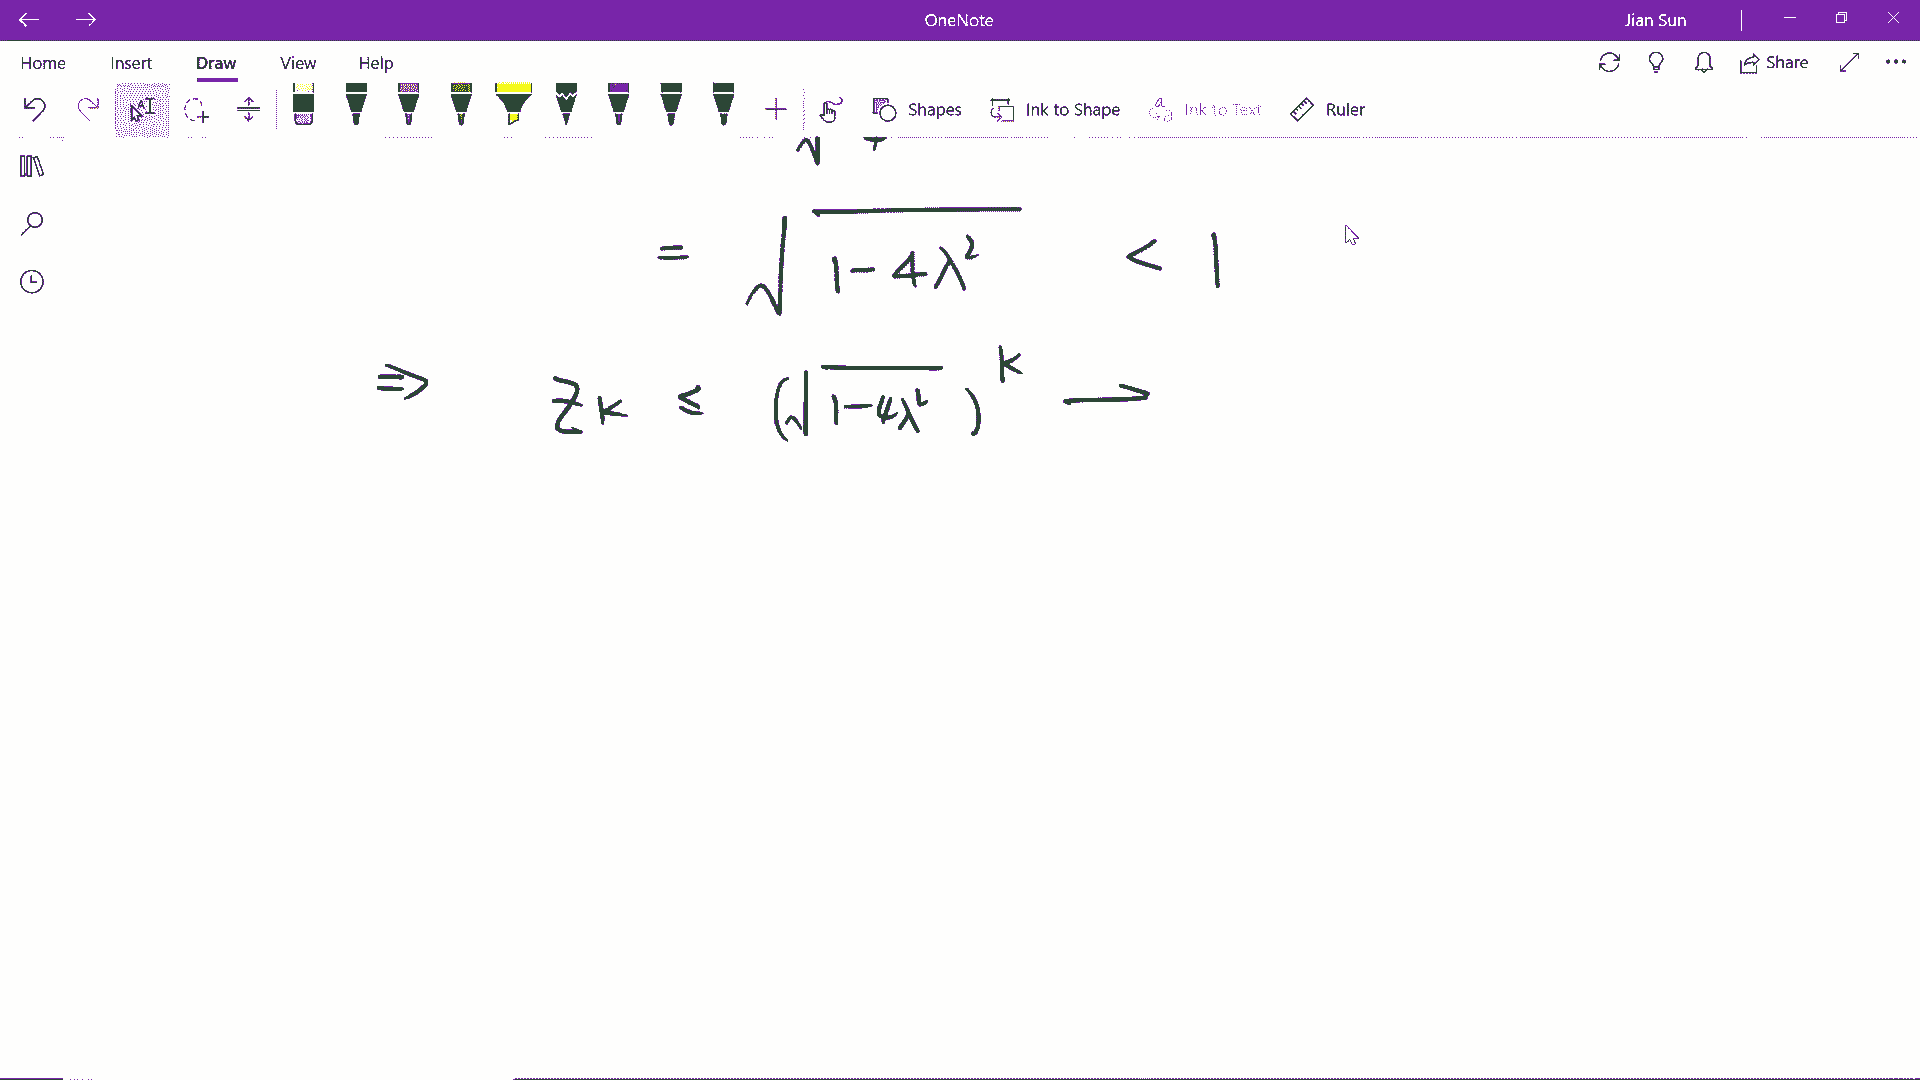 OneNote
Jian Sun
Home Insert Draw View Help
Share
Shapes Ink to Shape Ink to Text Ruler
= √(1-4λ²) < 1
⇒ Z_K ≤ (√(1-4λ²))^K →